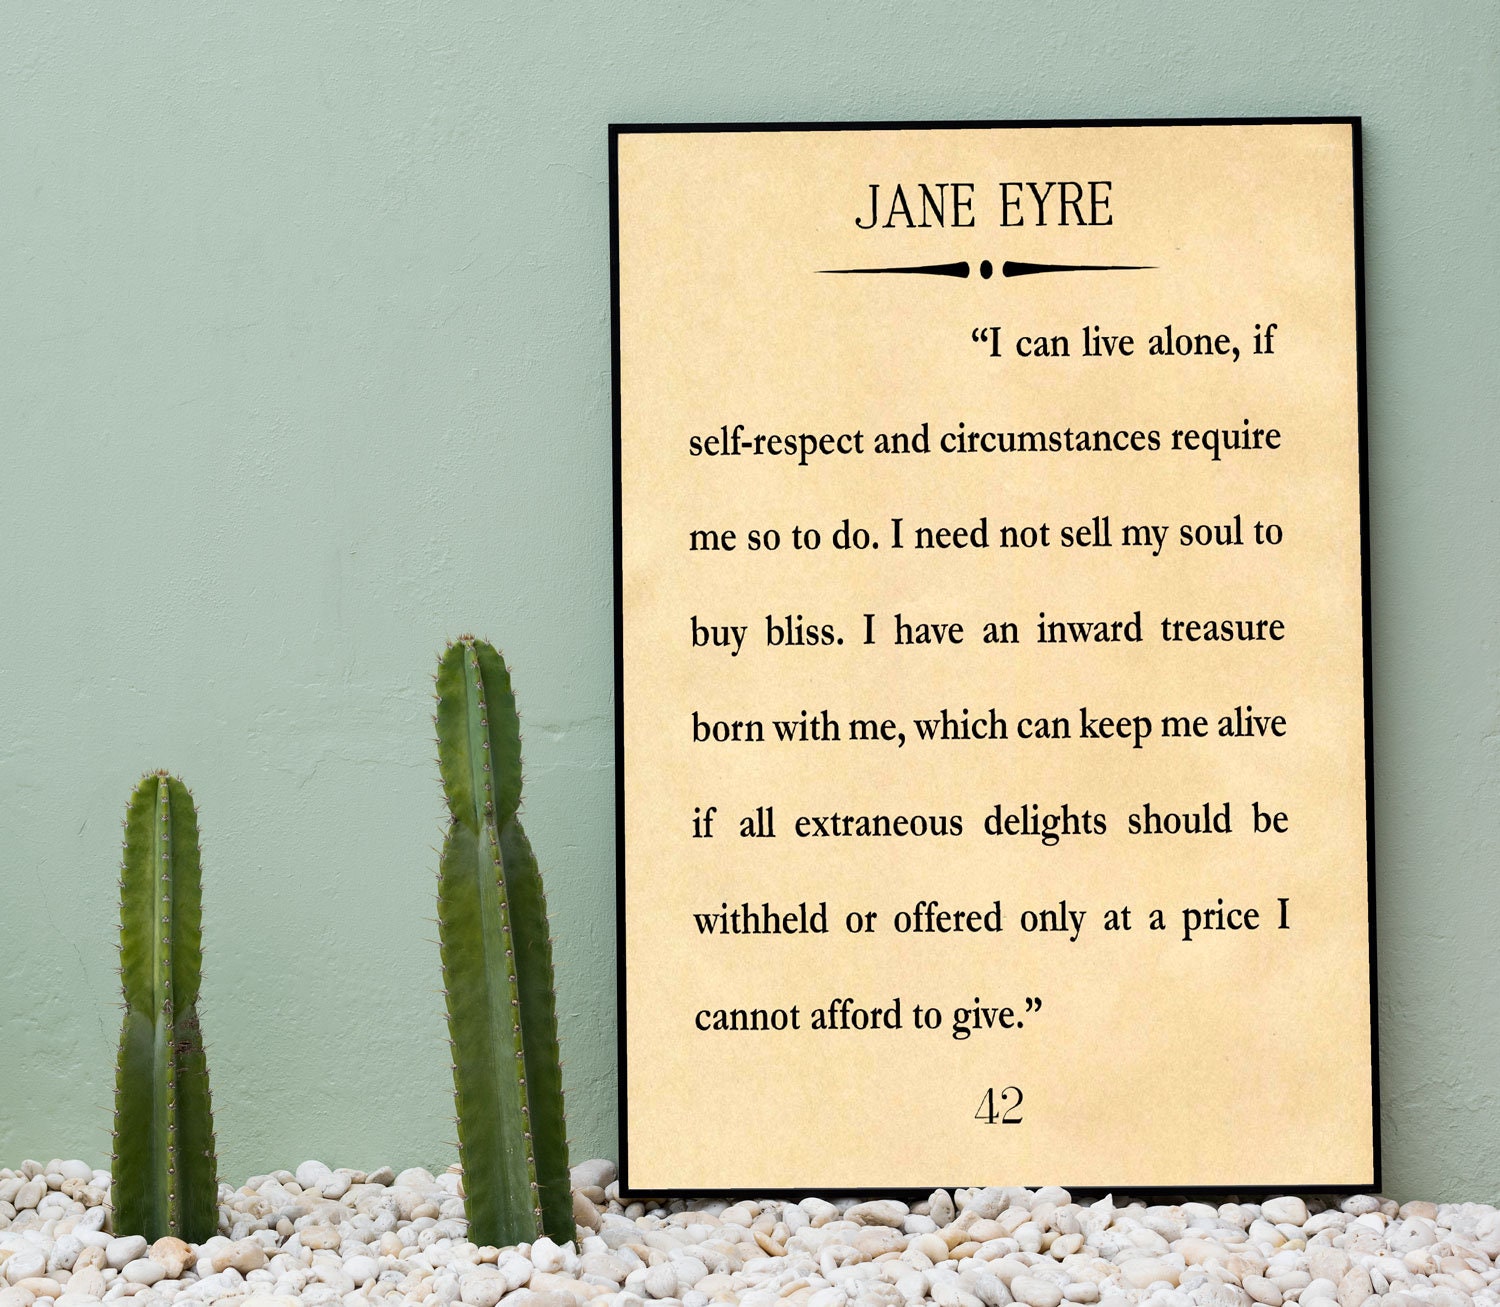 JANE EYRE
“I can live alone, if
self-respect and circumstances require
me so to do. I need not sell my soul to
buy bliss. I have an inward treasure
born with me, which can keep me alive
if all extraneous delights should be
withheld or offered only at a price I
cannot afford to give.”
42